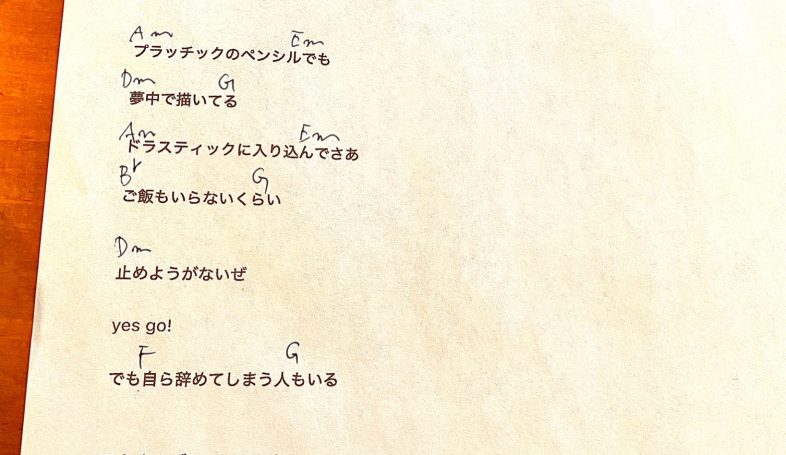 Am Em
プラッチックのペンシルでも
Dm G
夢中で描いてる
Am Em
ドラスティックに入り込んでさあ
B♭ G
ご飯もいらないくらい
Dm
止めようがないぜ
yes go!
F G
でも自ら辞めてしまう人もいる